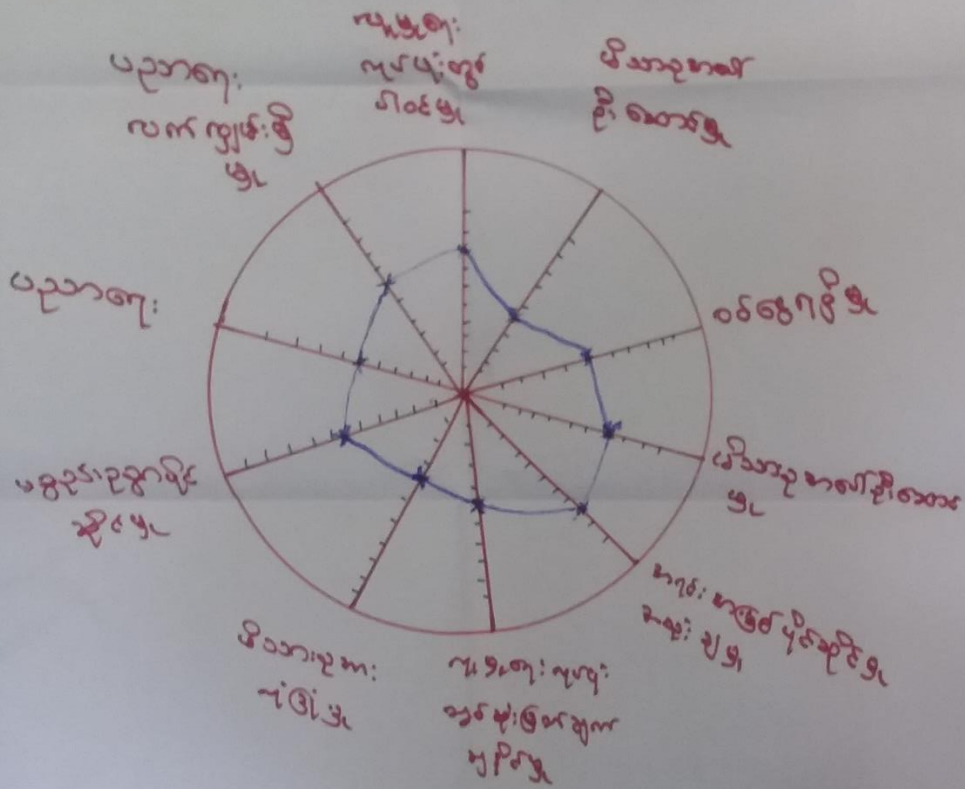 လူမှုရေး
လုပ်ငန်းတွင်
ပါဝင်မှု
မိသားစုအပေါ်
ဦးဆောင်မှု
ဝင်ငွေရရှိမှု
မိသားစုအပေါ်ဦးဆောင်
မှု
အရင်းအမြစ်ပိုင်ဆိုင်မှု
လူမှုရေးလုပ်ငန်း
တွင်ဆုံးဖြတ်ချက်
မိသားစုအား
ပစ္စည်းဥစ္စာပိုင်
ဆိုင်မှု
ပညာရေး
ပညာရေး
လက်လှမ်းမှီ
မှု